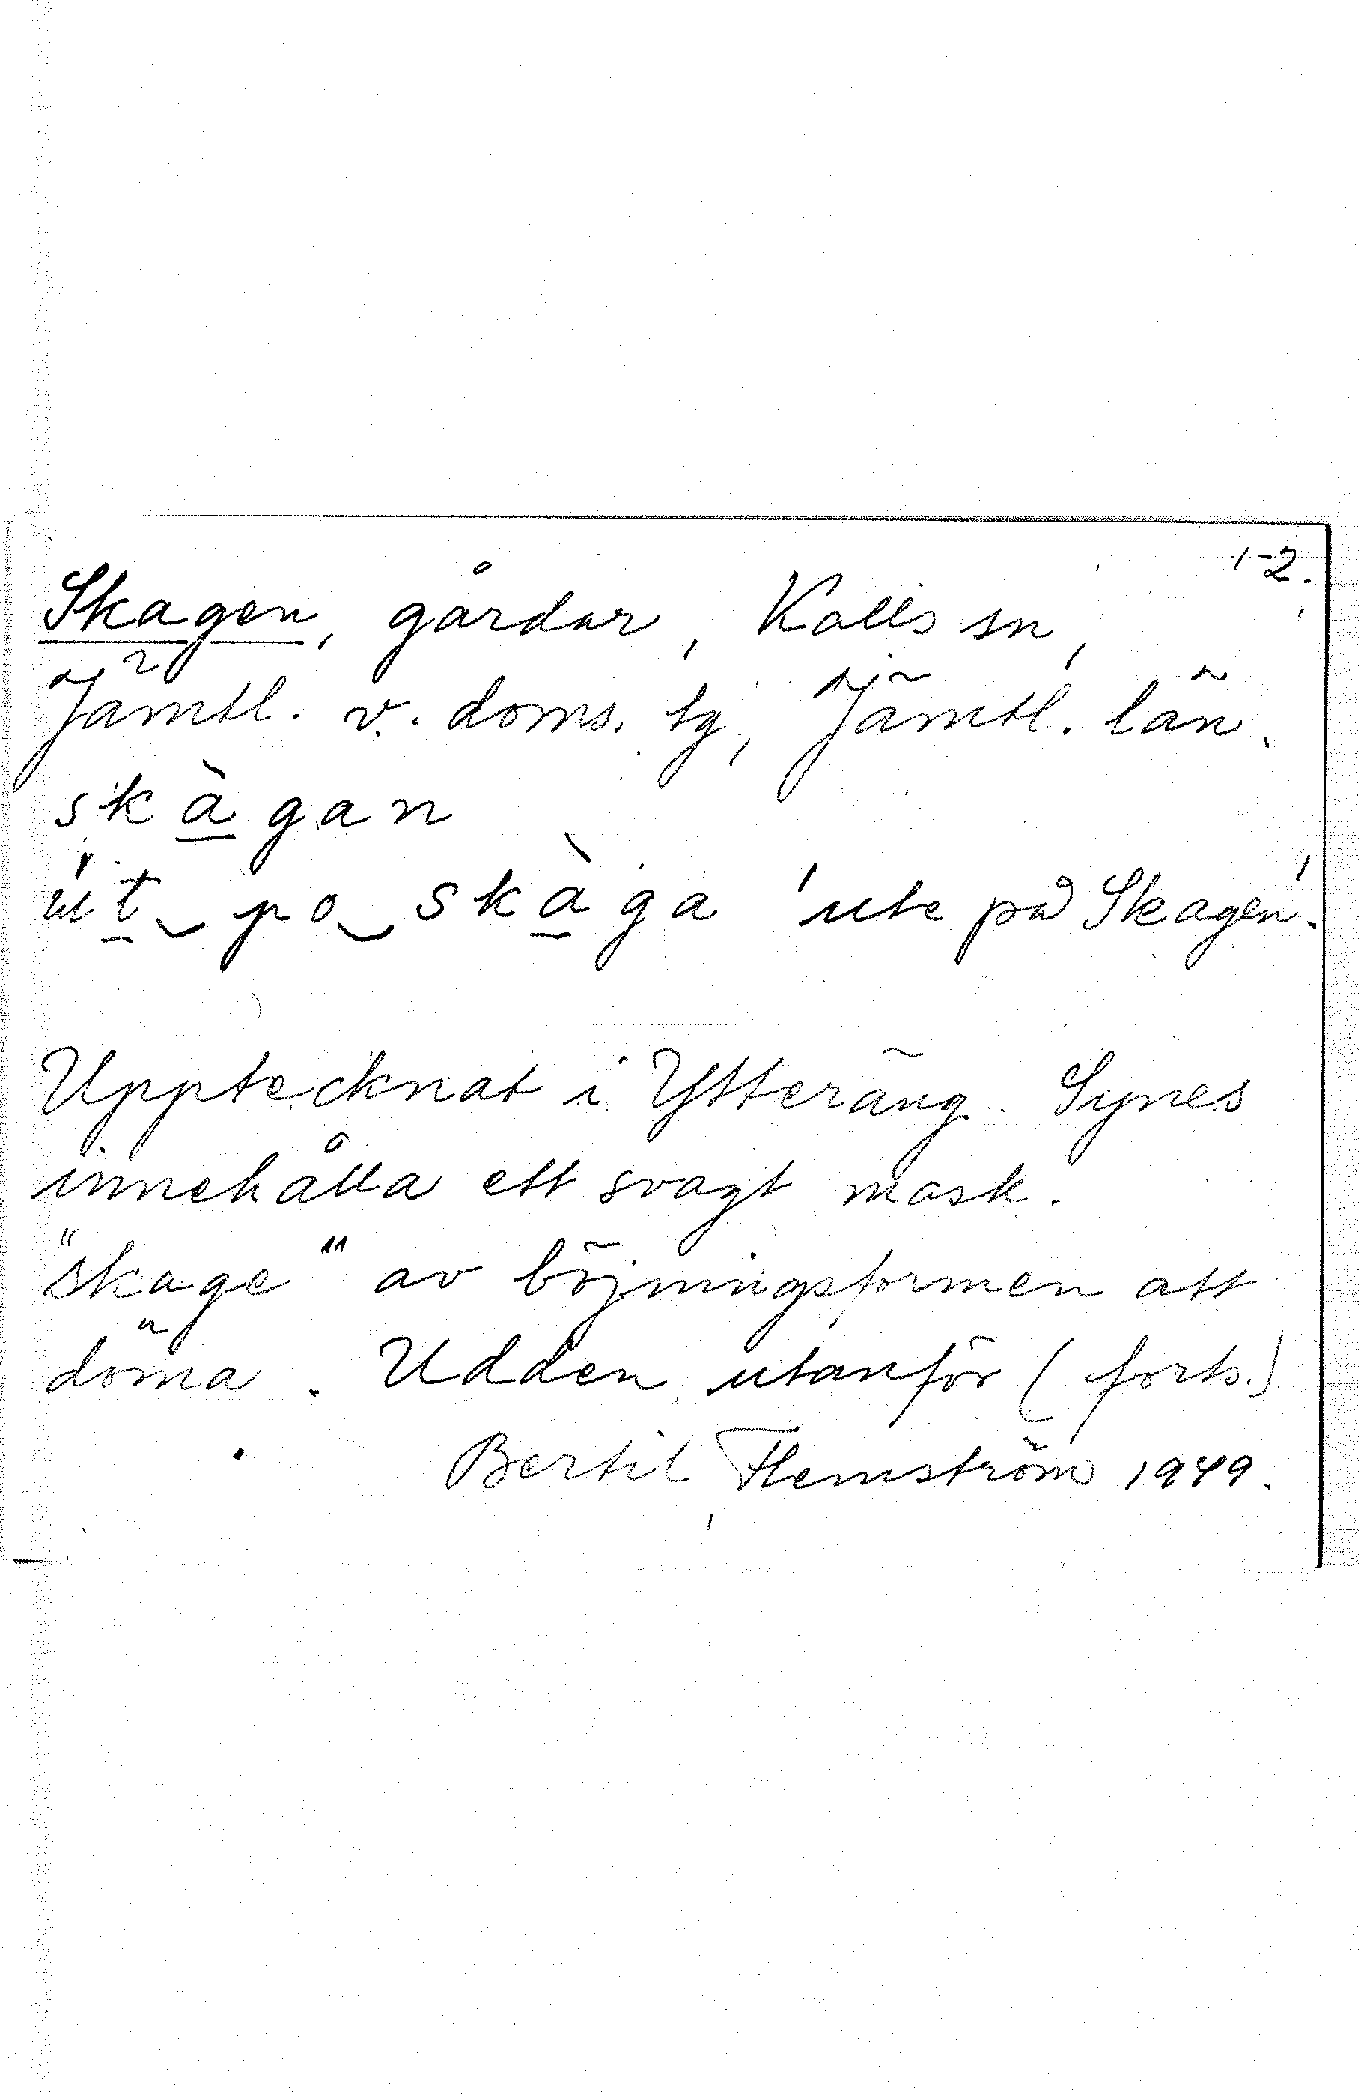 1-2.
Skagen, gårdar, Kalls sn,
Jämtl. v. doms. tg, Jämtl. län.
skàgan
út po skàga 'ute på Skagen'.
Upptecknat i Ytteräng. Synes
innehålla ett svagt mask.
"skage" av böjningsformen att
döma. Udden utanför (forts.)
Bertil Flemström 1949.